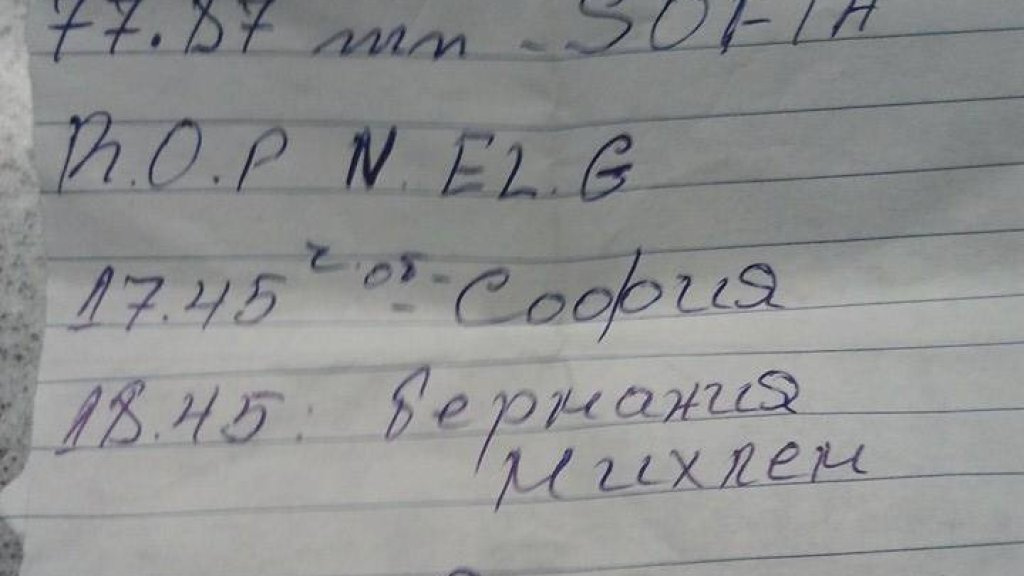 77.87 mm - SOFIA
R.O.P N. EL. G
17.45 ч. от - София
18.45: Германия
Михлен